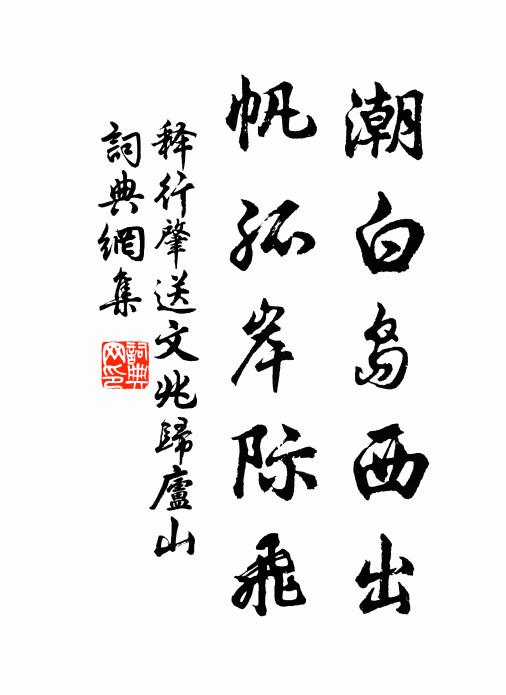 潮白岛西出
帆孤岸际飛
释行肇送文兆歸廬山
詞典網集
詞典网印